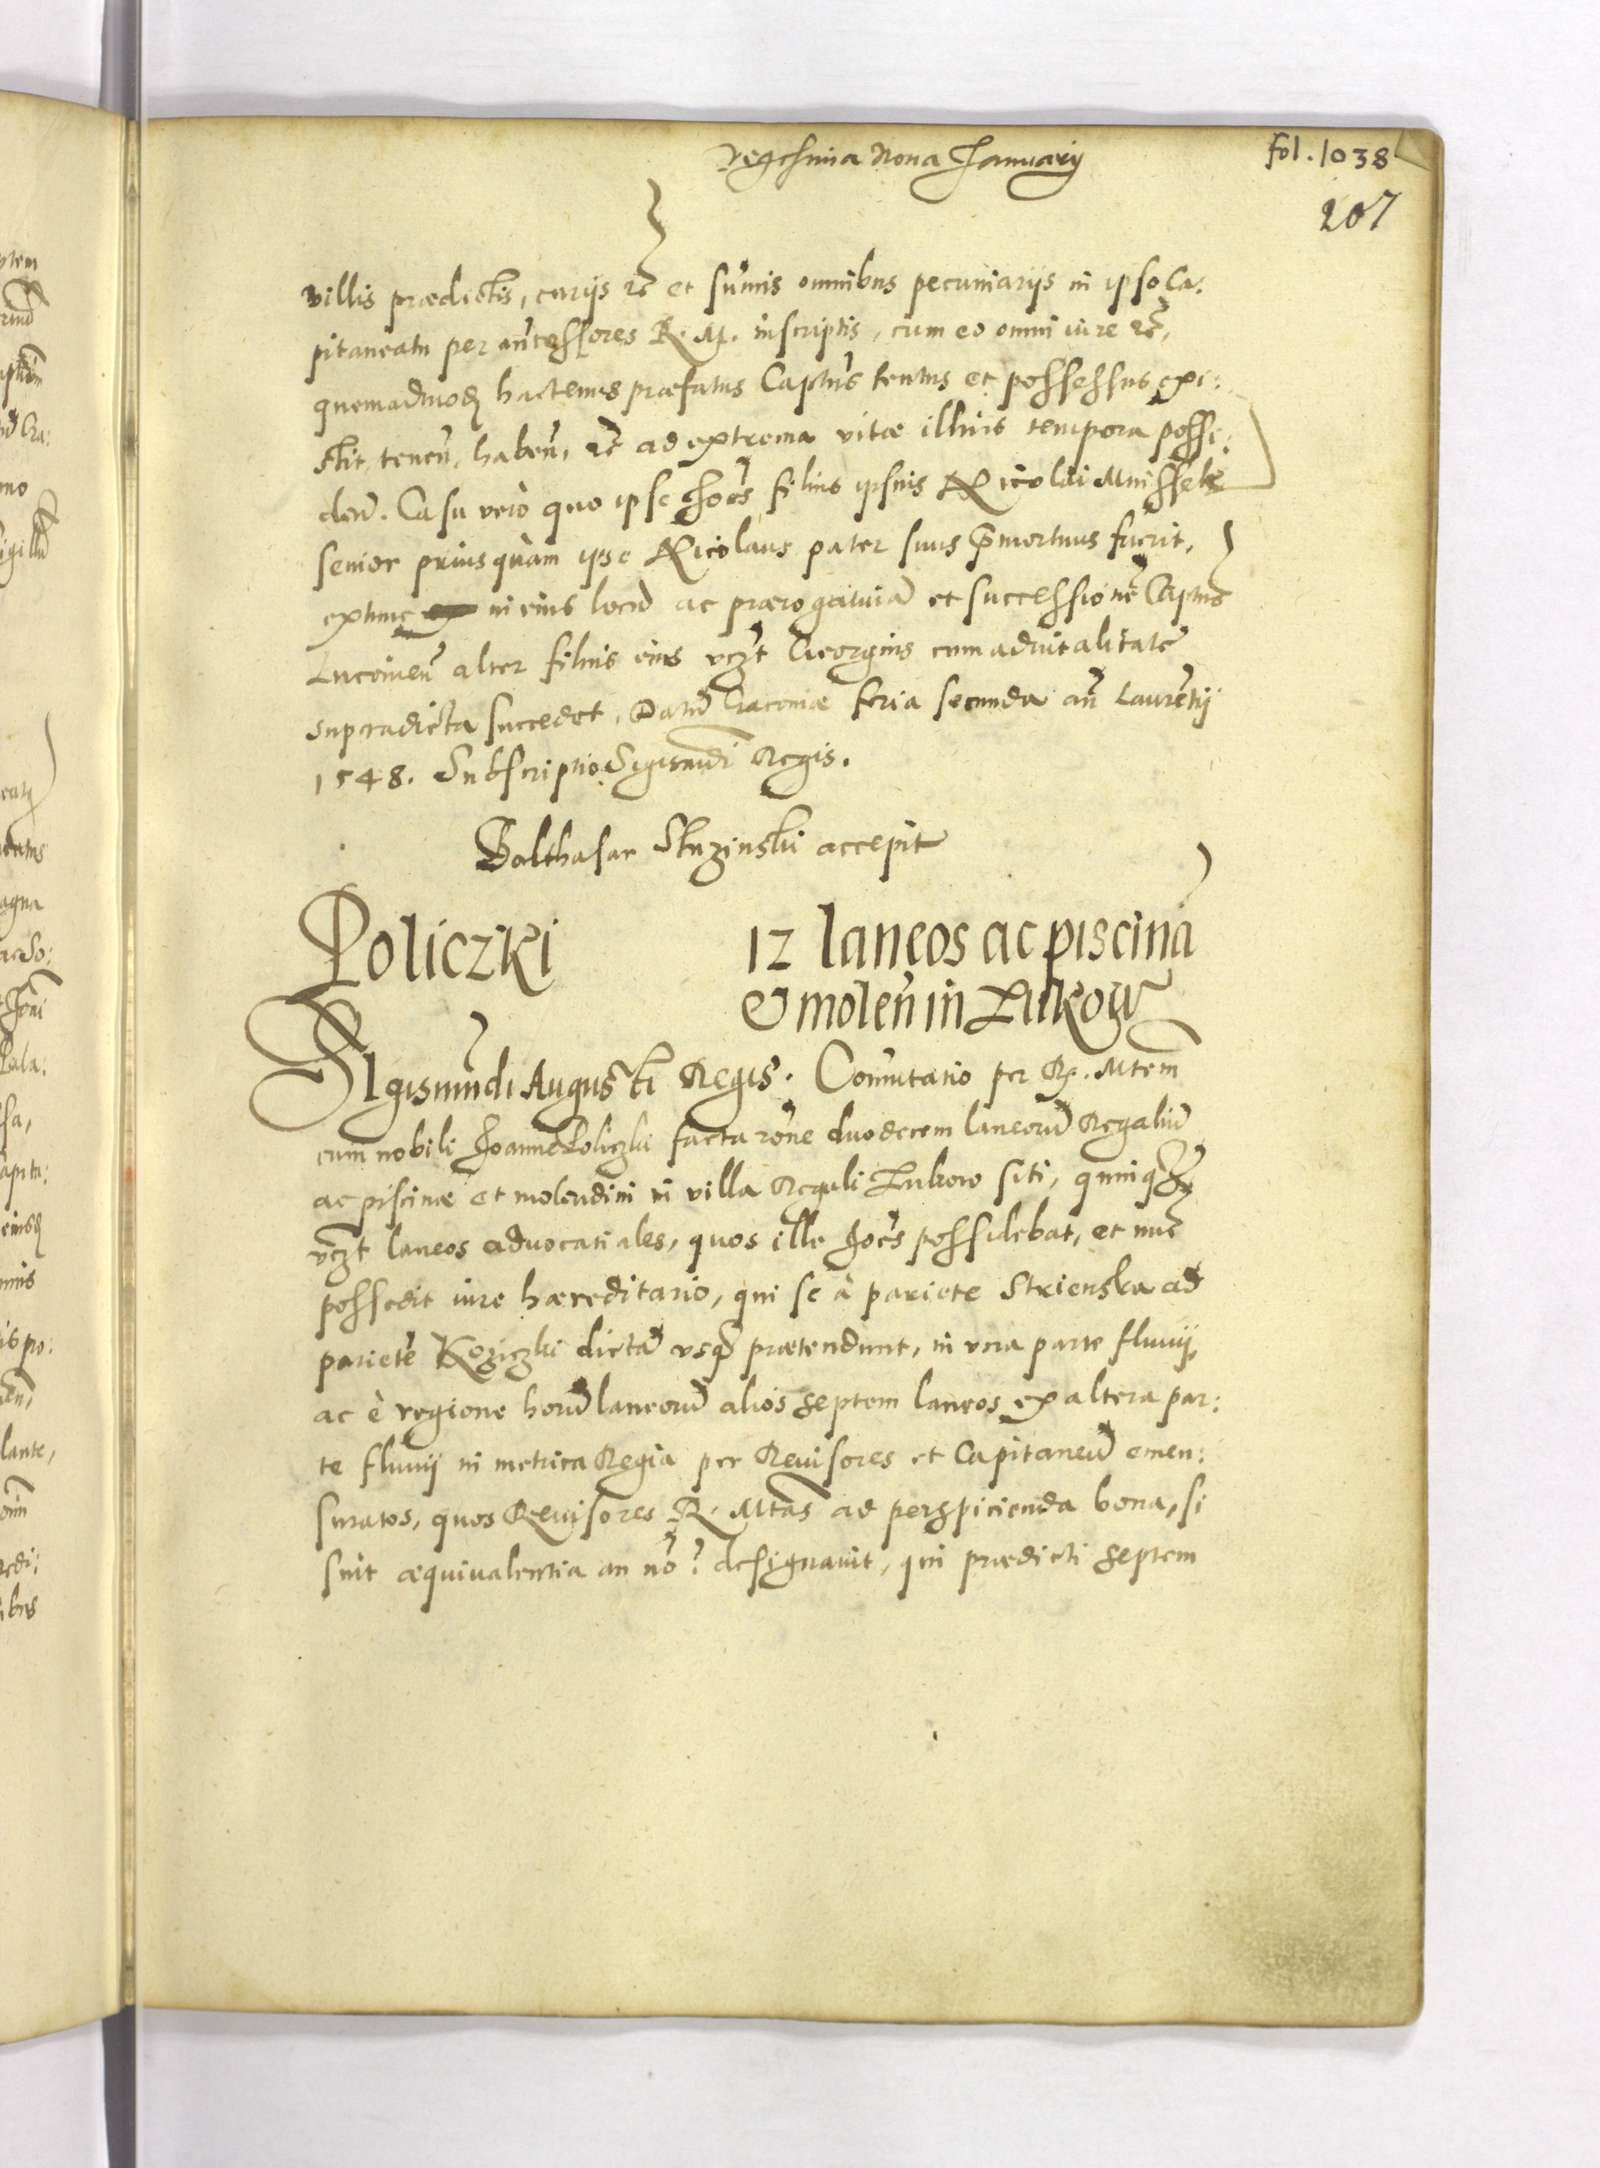 vegesima Nona January
fol. 1038
207
villis prædictis, curijs rc̃ et sum̃is omnibus pecuniarijs in ipso Ca:
pitaneatu per añtcessores R. M. inscriptis, cum eo omni iure rc̃,
quemadmodȝ hactenus præfatus Captus̃ tentus et possessus exi:
stit, teneñ, habeñ, rc̃ ad extrema vitæ illius tempora possi:
deñ. Casu verò quo ipse Joẽs filius ipsius Nicolai Mnissek
senior prius quàm ipse Nicolaus pater suus p̃mortuus fuerit,
extunc in eius locũ ac prærogatiuã et successionẽ Captus̃
Lucouieñ alter filius eius vcz̃t Georgius cum aduitalitate
supradicta succedet, Datũ Cracouiæ feria secunda añ Laurẽtij
1548. Subscriptio Sigismũdi Regis.
Balthasar Sluzinski accepit
Policzki
12 laneos ac piscinã
& moleñ in Lukow
Sigismũdi Augusti Regis. Com̃utatio per R. Mtem̃
cum nobili Joanne Policzki facta rõne duodecem laneorũ Regaliũ
ac piscinæ et molendini in villa Regali Lukow siti, quinqȝ
vcz̃t laneos aduocatiales, quos ille Joẽs possidebat, et nuc̃
possedit iure hæreditario, qui se à pariete Strienska ad
parietẽ Koziczki dictã vsqȝ prætendunt, in vna parte fluuij,
ac è regione horũ laneorũ alios septem laneos ex altera par:
te fluuij in metrica Regia per Reuisores et Capitaneũ emen:
suratos, quos Reuisores R. Mtas̃ ad perspicienda bona, si
sint æquivalentia an nõ? designauit, qui prædicti septem